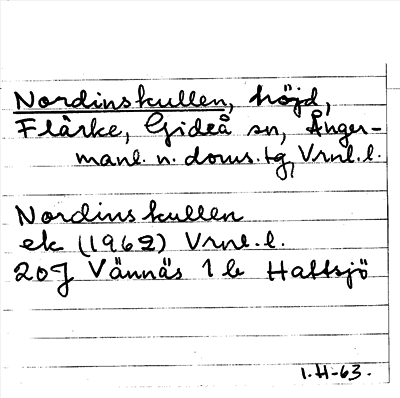 Nordinskullen, höjd,
Flärke, Gideå sn, Ånger-
manl. n. doms. tg, Vrnl. l.
Nordinskullen
ek (1962) Vrnl. l.
20J Vännäs 1b Hattsjö
1.H-63.